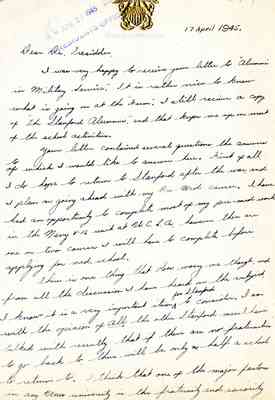 APR 21 1945
PRESIDENT'S OFFICE
17 April 1945.
Dear Dr. Tresidder,
I was very happy to receive your letter to "Alumni
in Military Service". It is rather nice to know
what is going on at the Farm; I still receive a copy
of "The Stanford Alumnus", and that keeps me up on most
of the school activities.
Your letter contained several questions the answers
of which I would like to answer here. First of all
I do hope to return to Stanford after the war and
I plan on going ahead with my Pre-Med career. I have
had an opportunity to complete most of my pre-med work
in the Navy V-12 unit at U.C.L.A. however there are
one or two courses I will have to complete before
applying for med. school.
There is one thing that has me though, and
from all the discussion I have heard on the subject
I know it is a very important thing for Stanford to consider. I am
with the opinion of all the other Stanford men I have
talked with recently that if there are no fraternities
to go back to there will be only a half a school
to return to. I think that one of the major factors
in any university is the fraternity and sorority